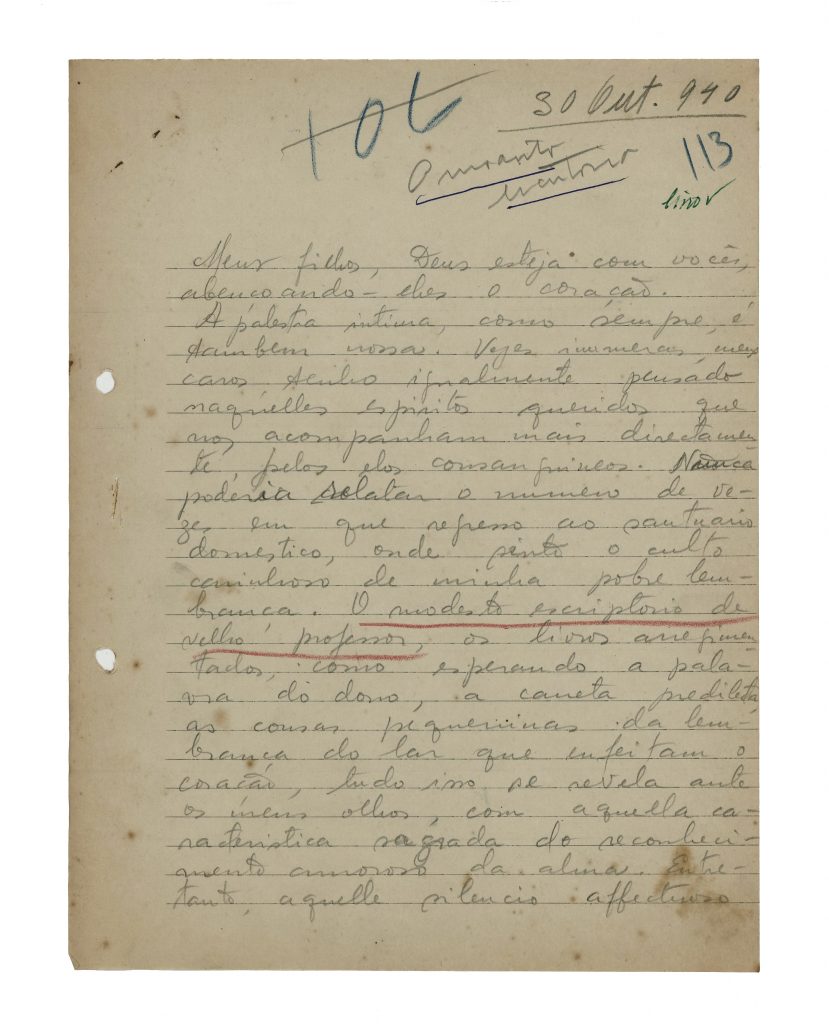 106
30 Out. 940
113
Meus filhos, Deus esteja com vocês,
abençoando-lhes o coração.
A palestra intima, como sempre, é
tambem nossa. Vezes inumeras, meus
caros tenho igualmente pensado
naquelles espiritos queridos que
nos acompanham mais directamen
te, pelos elos consanguineos. Nunca
poderia relatar o numero de ve-
zes em que regresso ao santuario
domestico, onde sinto o culto
carinhoso de minha pobre lem-
brança. O modesto escriptorio de
velho professor, os livros arregimen
tados, como esperando a pala-
vra do dono, a caneta predilecta,
as cousas pequeninas da lem-
brança do lar que enfeitam o
coração, tudo isso se revela ante
os meus olhos, com aquella ca-
racteristica sagrada do reconheci-
mento amoroso da alma. Entre-
tanto, aquelle silencio affectuoso